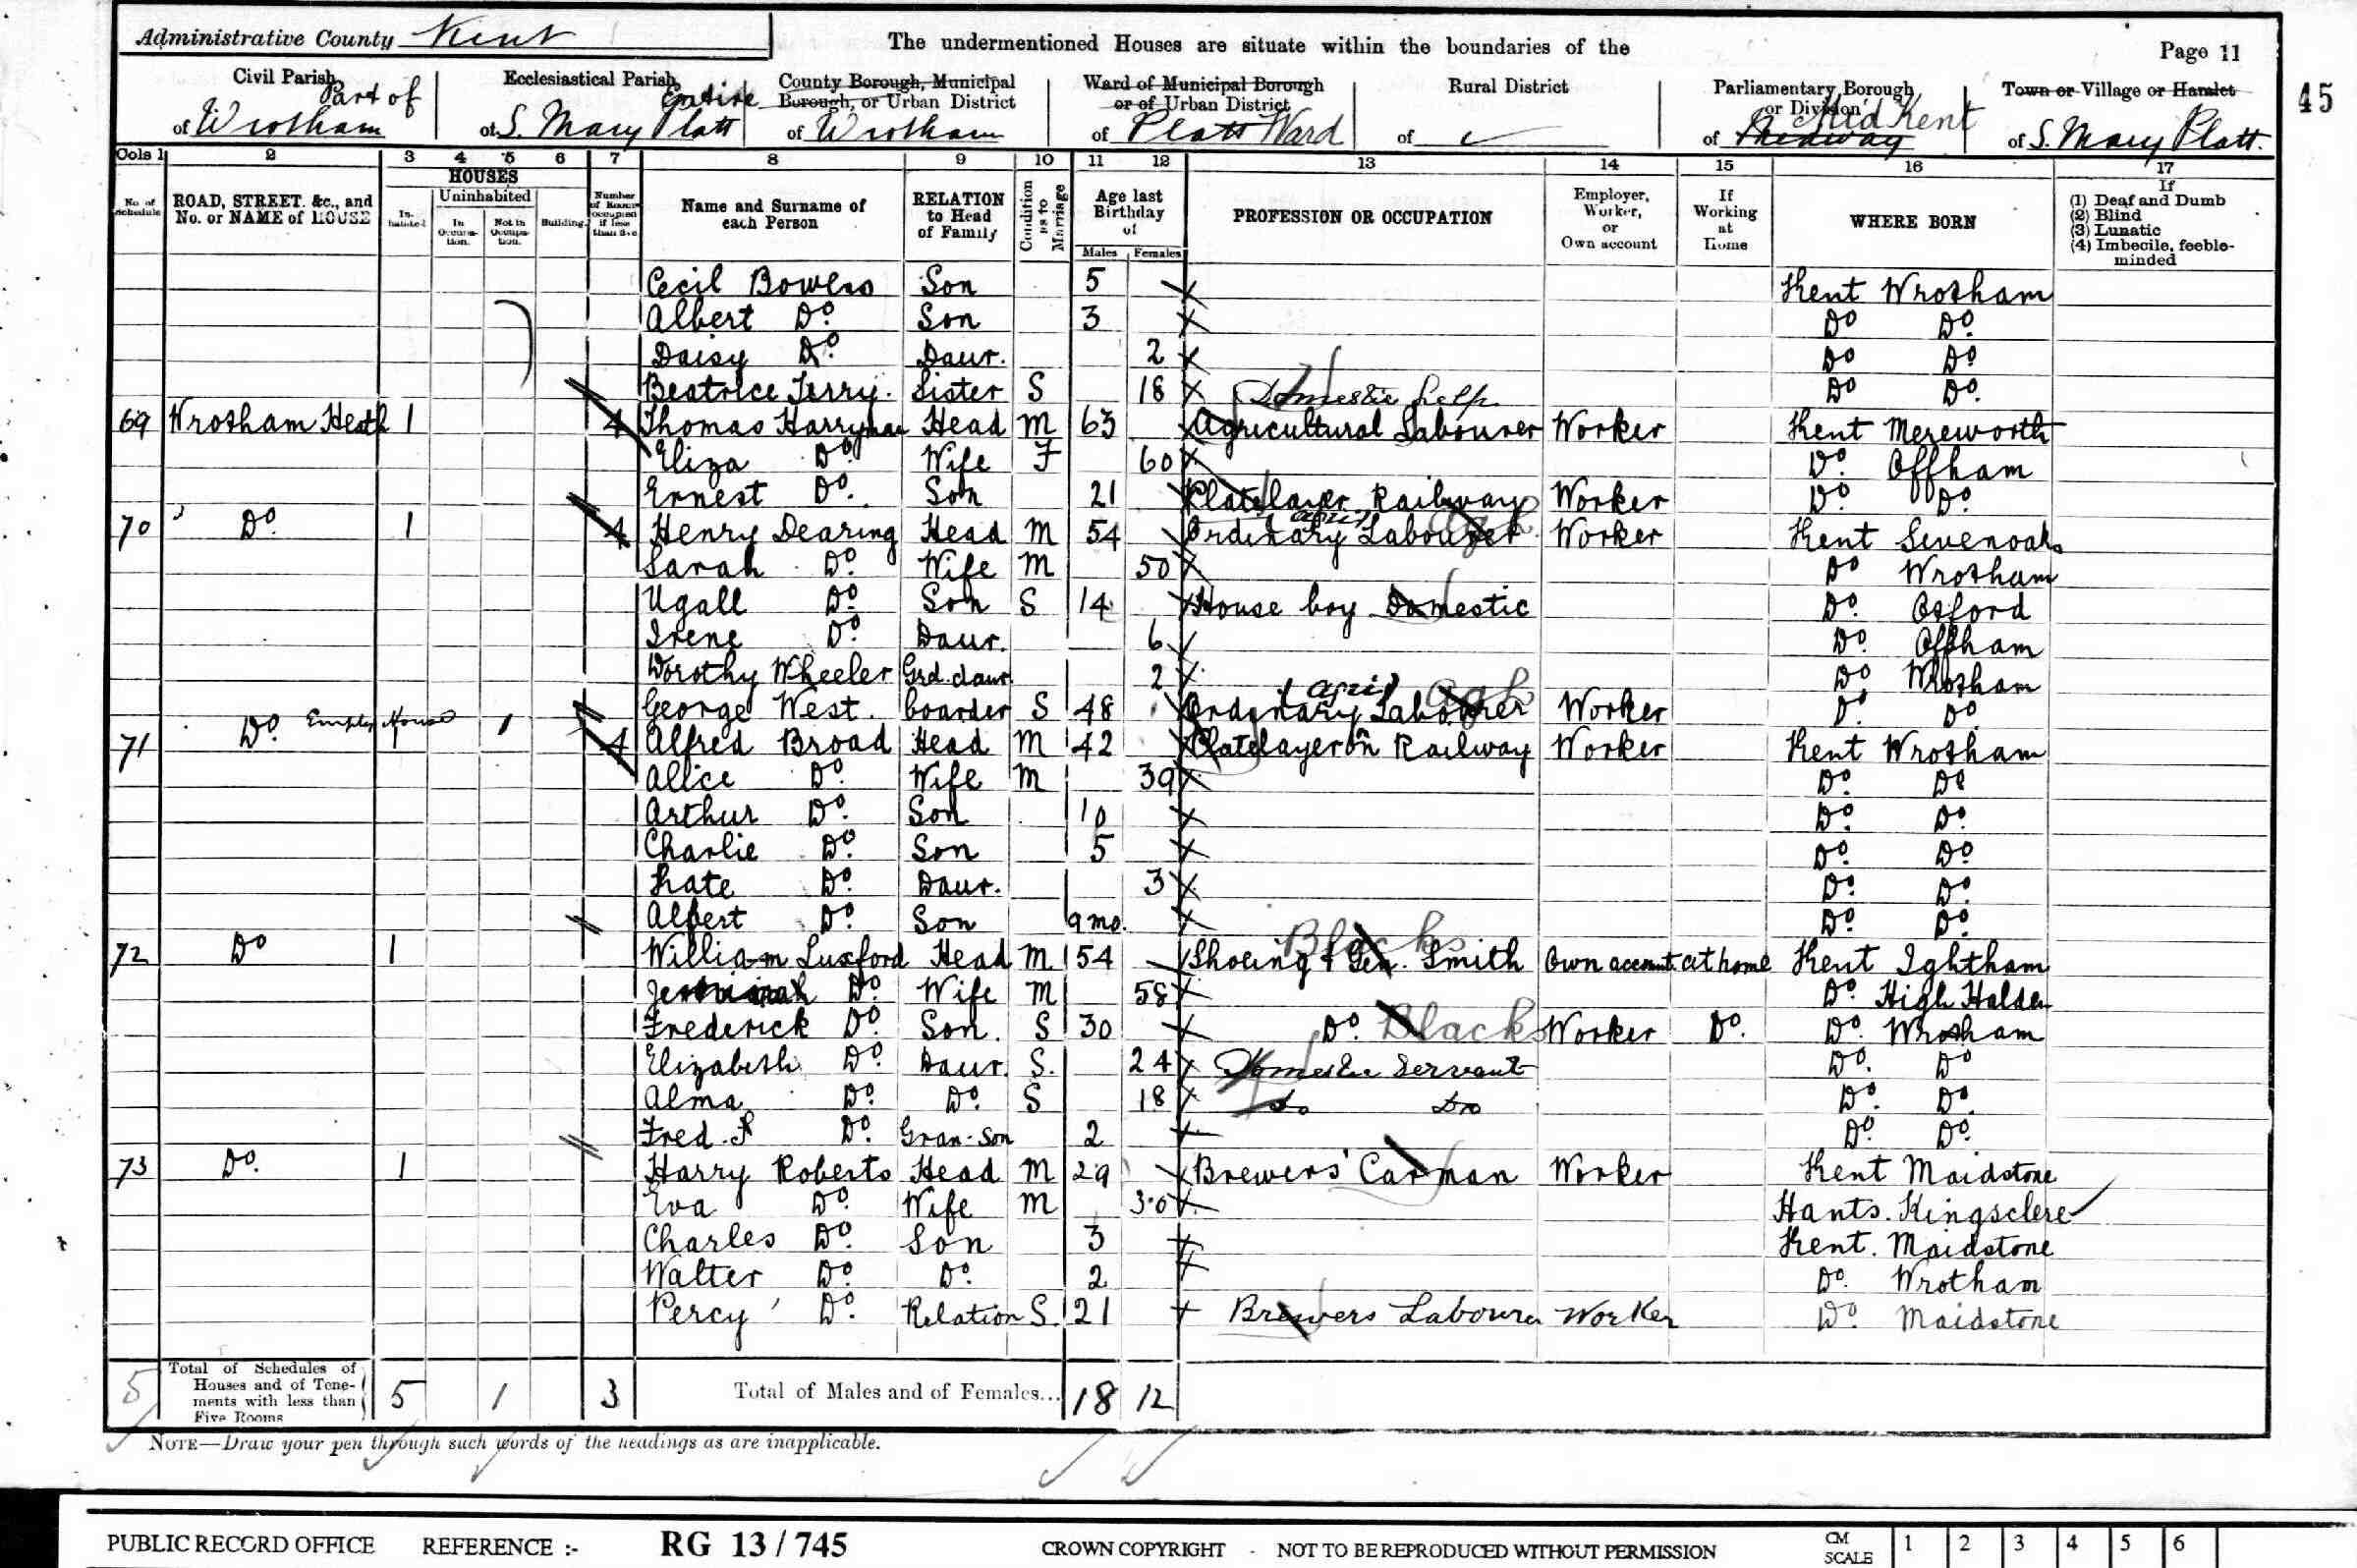 Administrative County Kent
The undermentioned Houses are situate within the boundaries of the
Page 11
45
Civil Parish
Part of
of Wrotham
Ecclesiastical Parish
Entire
of S. Mary Platt
County Borough, Municipal
Borough, or Urban District
of Wrotham
Ward of Municipal Borough
or of Urban District
of Platt Ward
Rural District
of
Parliamentary Borough
or Division
Mid Kent
of Medway
Town or Village or Hamlet
of S. Mary Platt.
Cols 1 2 3 4 5 6 7 8 9 10 11 12 13 14 15 16 17
No. of Schedule
ROAD, STREET, &c., and
No. or NAME of HOUSE
HOUSES
In-habited
Uninhabited
In Occupa-tion.
Not in Occupa-tion.
Building
Number of Rooms occupied if less than five
Name and Surname of
each Person
RELATION
to Head
of Family
Condition as to Marriage
Age last
Birthday
of
Males Females
PROFESSION OR OCCUPATION
Employer,
Worker,
or
Own account
If
Working
at
Home
WHERE BORN
If
(1) Deaf and Dumb
(2) Blind
(3) Lunatic
(4) Imbecile, feeble-
minded
Cecil Bowers Son 5 Kent Wrotham
Albert Do. Son 3 Do Do.
Daisy Do. Daur. 2 Do Do
Beatrice Terry. Sister S 18 Domestic help Do Do.
69 Wrotham Heath 1 4 Thomas Harryman Head M 63 Agricultural Labourer Worker Kent Mereworth
Eliza Do. Wife F 60 Do. Offham
Ernest Do. Son 21 Platelayer Railway Worker Do. Do.
70 Do. 1 4 Henry Dearing Head M 54 Ordinary Labourer Worker Kent Sevenoaks
Sarah Do. Wife M 50 Do Wrotham
Ugall Do. Son S 14 House boy Domestic Do. Otford
Irene Do. Daur. 6 Do. Offham
Dorothy Wheeler Grd. daur. 2 Do Wrotham
George West. boarder S 48 Ordinary Labourer Worker Do. Do
71 Do. Empty House 1 1 4 Alfred Broad Head M 42 Platelayer on Railway Worker Kent Wrotham
Allice Do. Wife M 39 Do. Do
Arthur Do. Son 10 Do. Do.
Charlie Do. Son 5 Do. Do
Kate Do. Daur. 3 Do. Do.
Albert Do. Son 9 mo. Do. Do.
72 Do 1 William Luxford Head M 54 Shoeing & Gen. Smith Blacks Own account at home Kent Ightham
Do. Wife M 58 Do. High Halden
Frederick Do. Son. S 30 Do. Blacks Worker Do. Do. Wrotham
Elizabeth Do. Daur. S. 24 Domestic Servant Do. Do
Alma Do. Do. S 18 Do Do Do. Do.
Fred. Do. Gran-son 2 Do. Do.
73 Do. 1 Harry Roberts Head M 29 Brewers' Carman Worker Kent Maidstone
Eva Do. Wife M 30 Hants. Kingsclere
Charles Do. Son 3 Kent. Maidstone
Walter Do. Do. 2 Do. Wrotham
Percy Do. Relation S. 21 Brewers Labourer Worker Do. Maidstone
5
Total of Schedules of
Houses and of Tene-
ments with less than
Five Rooms
5 1 3
Total of Males and of Females... 18 12
NOTE—Draw your pen through such words of the headings as are inapplicable.
PUBLIC RECORD OFFICE REFERENCE :- RG 13 / 745 CROWN COPYRIGHT - NOT TO BE REPRODUCED WITHOUT PERMISSION
CM SCALE 1 2 3 4 5 6